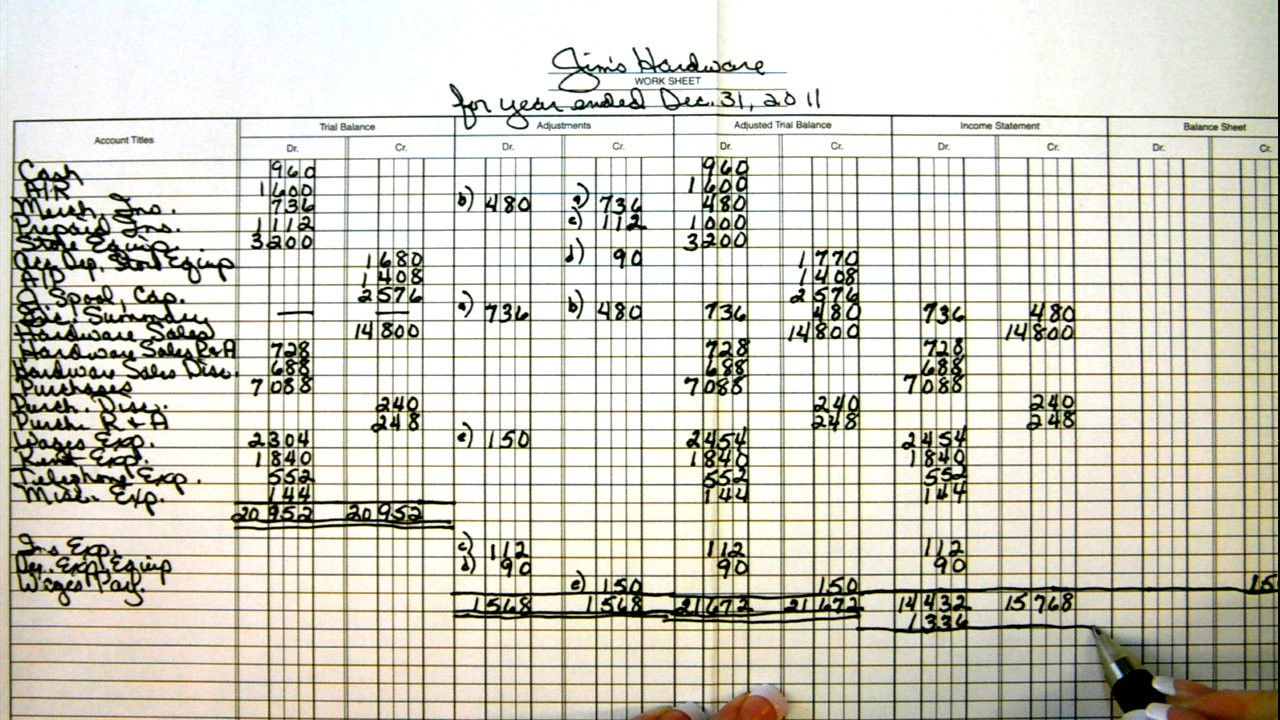 Jim's Hardware
WORK SHEET
for year ended Dec. 31, 2011
Account Titles Trial Balance Adjustments Adjusted Trial Balance Income Statement Balance Sheet
Dr. Cr. Dr. Cr. Dr. Cr. Dr. Cr. Dr. Cr.
Cash 960 960
A/R 1600 1600
Merch. Inv. 736 b) 480 a) 736 480
Prepaid Ins. 1112 c) 112 1000
Store Equip. 3200 3200
Acc. Dep. Store Equip 1680 d) 90 1770
A/P 1408 1408
J. Spool, Cap. 2576 2576
Inc. Summary — — a) 736 b) 480 736 480 736 480
Hardware Sales 14800 14800 14800
Hardware Sales R+A 728 728 728
Hardware Sales Disc. 688 688 688
Purchases 7088 7088 7088
Purch. Disc. 240 240 240
Purch. R+A 248 248 248
Wages Exp. 2304 e) 150 2454 2454
Rent Exp. 1840 1840 1840
Telephone Exp. 552 552 552
Misc. Exp. 144 144 144
20952 20952
Ins Exp. c) 112 112 112
Dep. Exp. Equip d) 90 90 90
Wages Pay. e) 150 150 15
1568 1568 21672 21672 14432 15768
1336